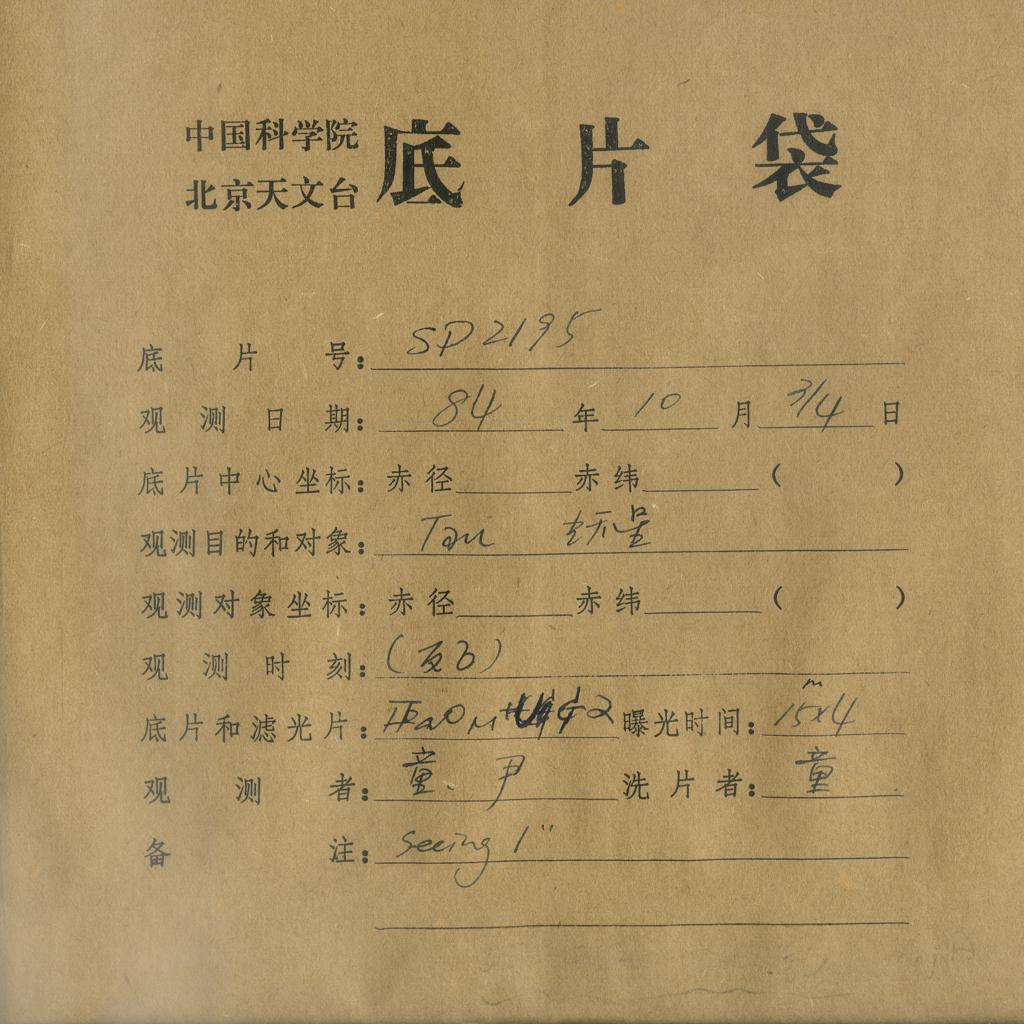 中国科学院
北京天文台
底片袋
底片号: SP2195
观测日期: 84年10月3/4日
底片中心坐标: 赤径 赤纬 ( )
观测目的和对象: Tau
观测对象坐标: 赤径 赤纬 ( )
观测时刻:
底片和滤光片: IIaO 曝光时间: 15ᵐx4
观测者: 童. 尹 洗片者: 童
备注: Seeing 1"